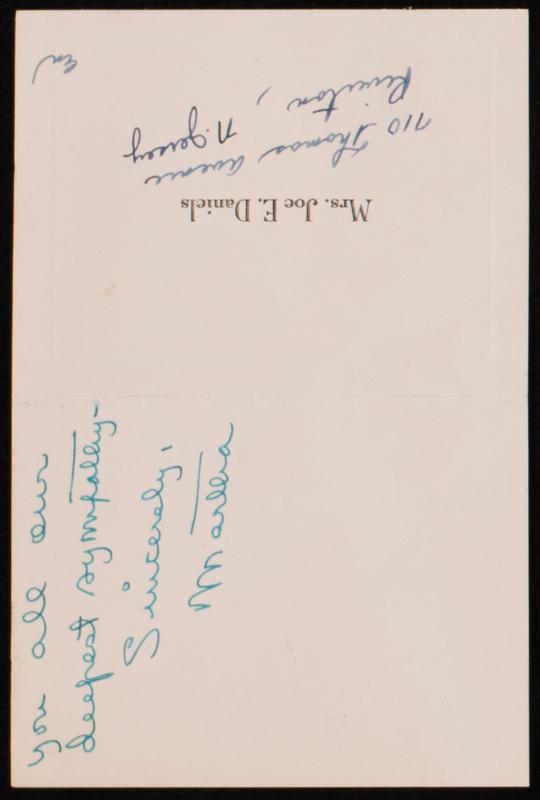 Mrs. Joe E. Daniels
710 Thomas avenue
Riverton, N. Jersey
you all our
deepest sympathy-
Sincerely,
Martha